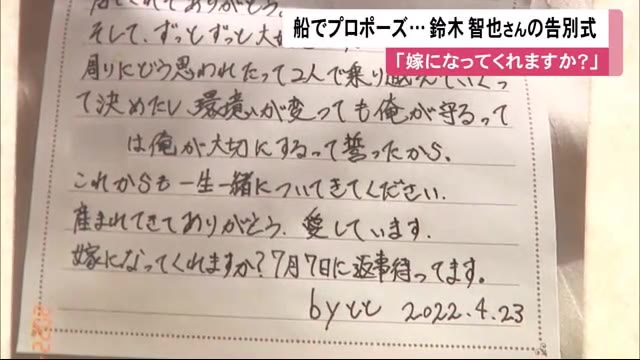 船でプロポーズ…鈴木 智也さんの告別式
「嫁になってくれますか?」
てくれてありがとう。
そして、ずっとずっと大
周りにどう思われたって2人で乗り越えていくっ
て決めたし、環境が変っても俺が守るって
は俺が大切にするって誓ったから。
これからも一生一緒についてきてください.
産まれてきてありがとう. 愛しています.
嫁になってくれますか?7月7日に返事待ってます。
byとも 2022.4.23